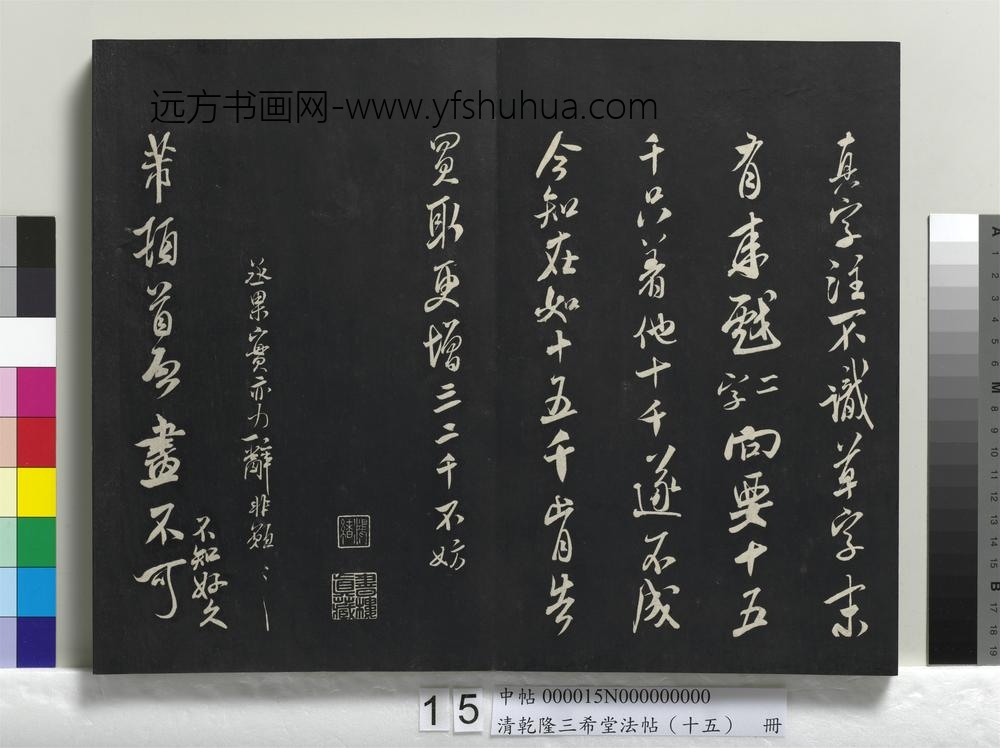 远方书画网-www.yfshuhua.com
真字注不識草字末
有來戲二字向要十五
千只着他十千遂不成
今知在如十五千肯告
買取更增三二千不妨
丞果實亦力辭非願
不知好久
芾頓首盡不可
書樓
15
中帖 000015N000000000
清乾隆三希堂法帖（十五） 冊
A 1 2 3 4 5 6 M 8 9 10 11 12 13 14 15 B 17 18 19